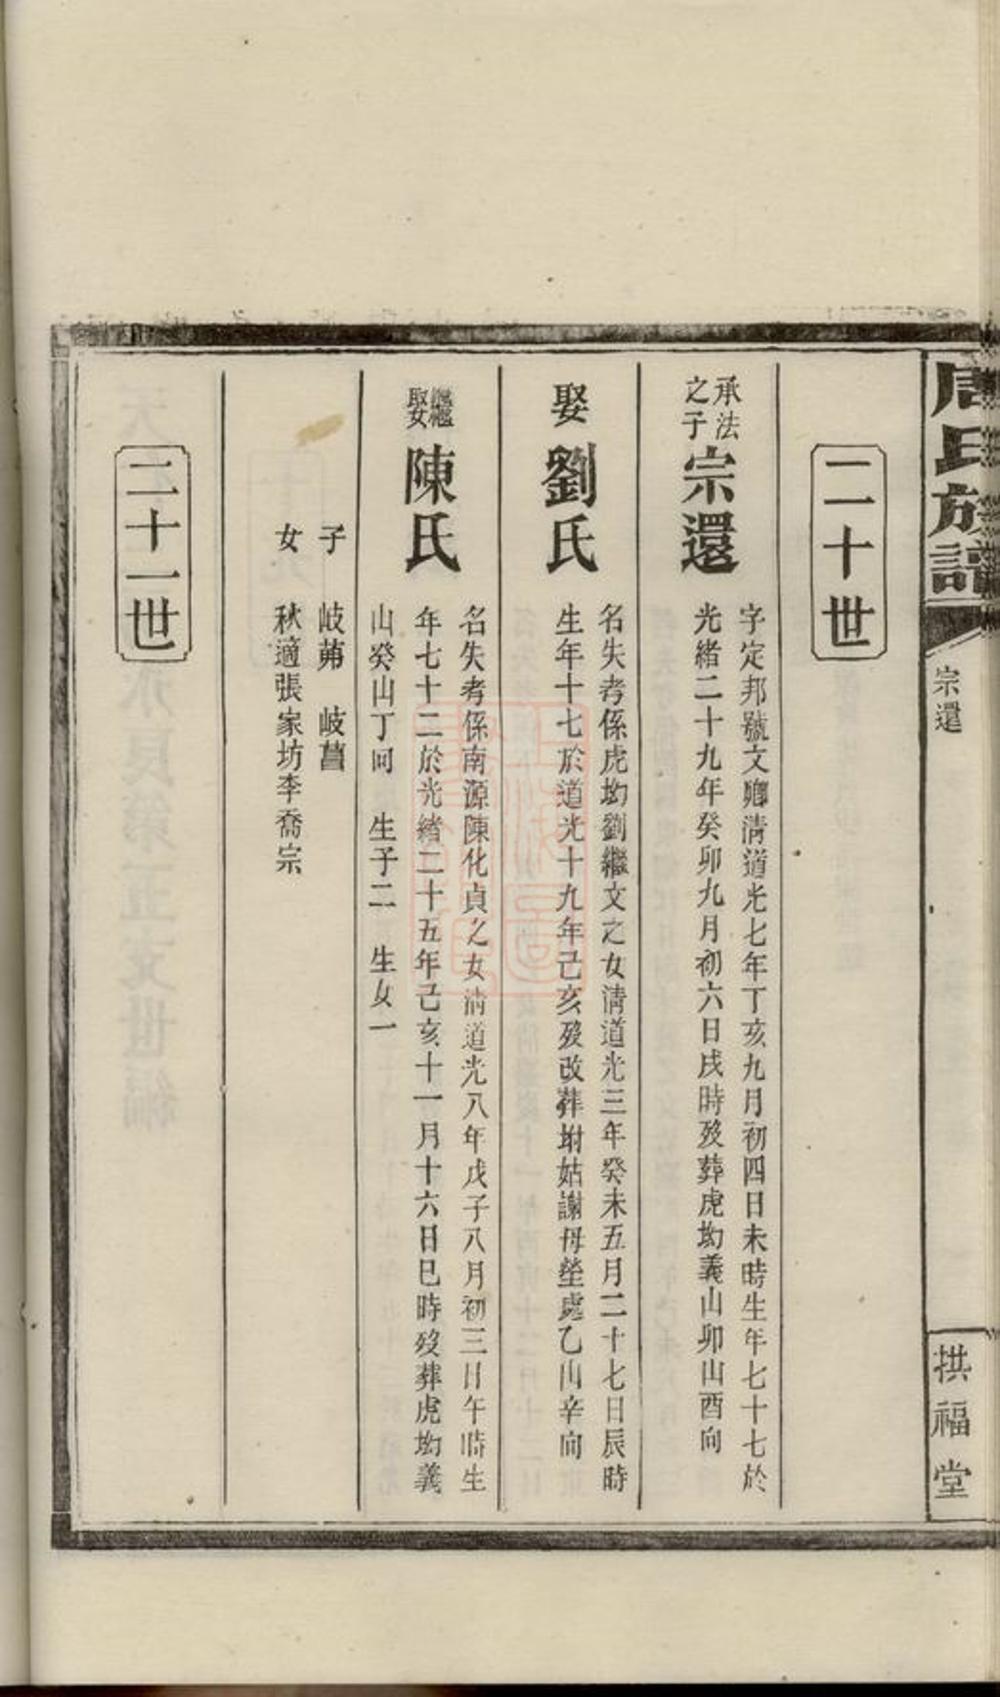 周氏族譜
宗還
拱福堂
二十世
承法之子
宗還
字定邦號文卿清道光七年丁亥九月初四日未時生年七十七於
光緒二十九年癸卯九月初六日戌時歿葬虎坳義山卯山酉向
娶
劉氏
名失考係虎坳劉繼文之女清道光三年癸未五月二十七日辰時
生年十七於道光十九年己亥歿改葬坿姑謝母塋處乙山辛向
繼娶
陳氏
名失考係南源陳化貞之女清道光八年戊子八月初三日午時生
年七十二於光緒二十五年己亥十一月十六日巳時歿葬虎坳義
山癸山丁向 生子二 生女一
子 岐茀 岐菖
女 秋適張家坊李喬宗
二十一世